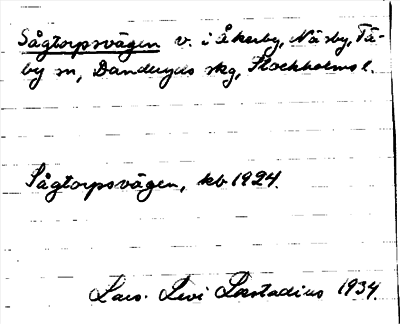 Sågtorpsvägen v. i Åkerby, Näsby, Tä-
by sn, Danderyds skg, Stockholms l.
Sågtorpsvägen, kb 1924.
Lars-Levi Læstadius 1934.